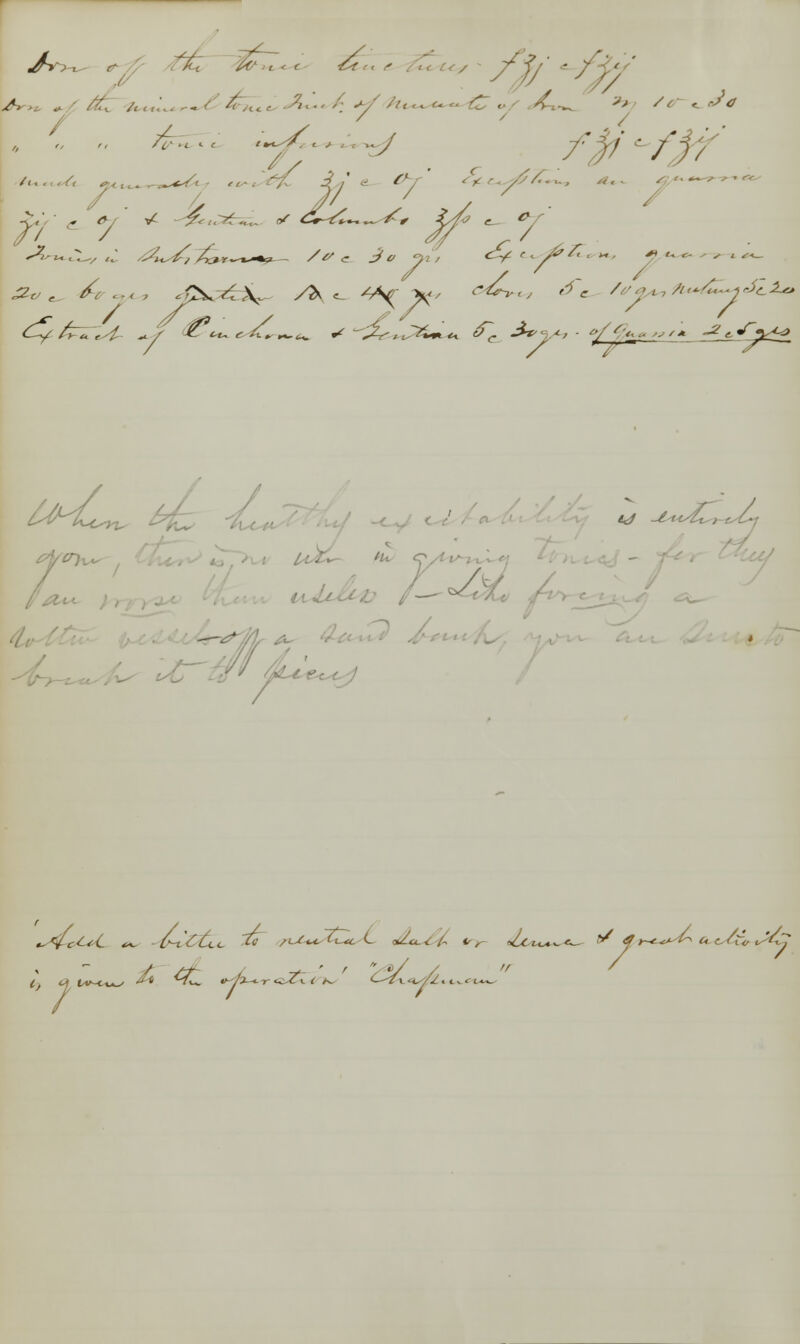 Dose of the tonic tinctures - fʒj a fʒij
Dose of the mineral tonic Tinct. of Muriate of Iron ♏ 10 a 30
" " " Tonic infusions f℥j a f℥ij
made generally with ℥j a Oj Exceptions, are quassia
ʒij a Oj & Gentian & Columbo ℥ss a Oj
Tonics in Substance 10 a 30 grs Exceptions, quassia
20 a 60 grs cloves, 5 a 10 grs, Nutmeg 5 a 20
Extract of Cinchona & Gentian 5 a 30 grs - of Quassia 2 a 5 grs
When the healthy excitability is entirely
gone, there is no use in giving tonics - for they
are worse than useless - Like forcing a
little vessel off a sand bank, you are sure to
break it to pieces
'Add a bitter to neutral salt or senna & great activity
is given to the operation' "Chapman"